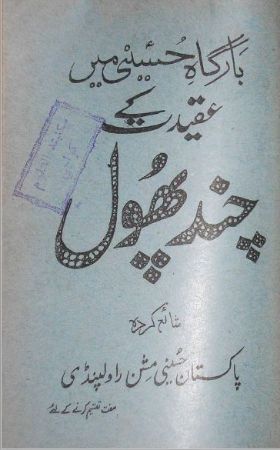 بارگاہِ حُسینی میں
عقیدت
کے
چند پھُول
شائع کردہ
پاکستان حُسینی مشن راولپنڈی
مفت تقسیم کرنے کے لئے